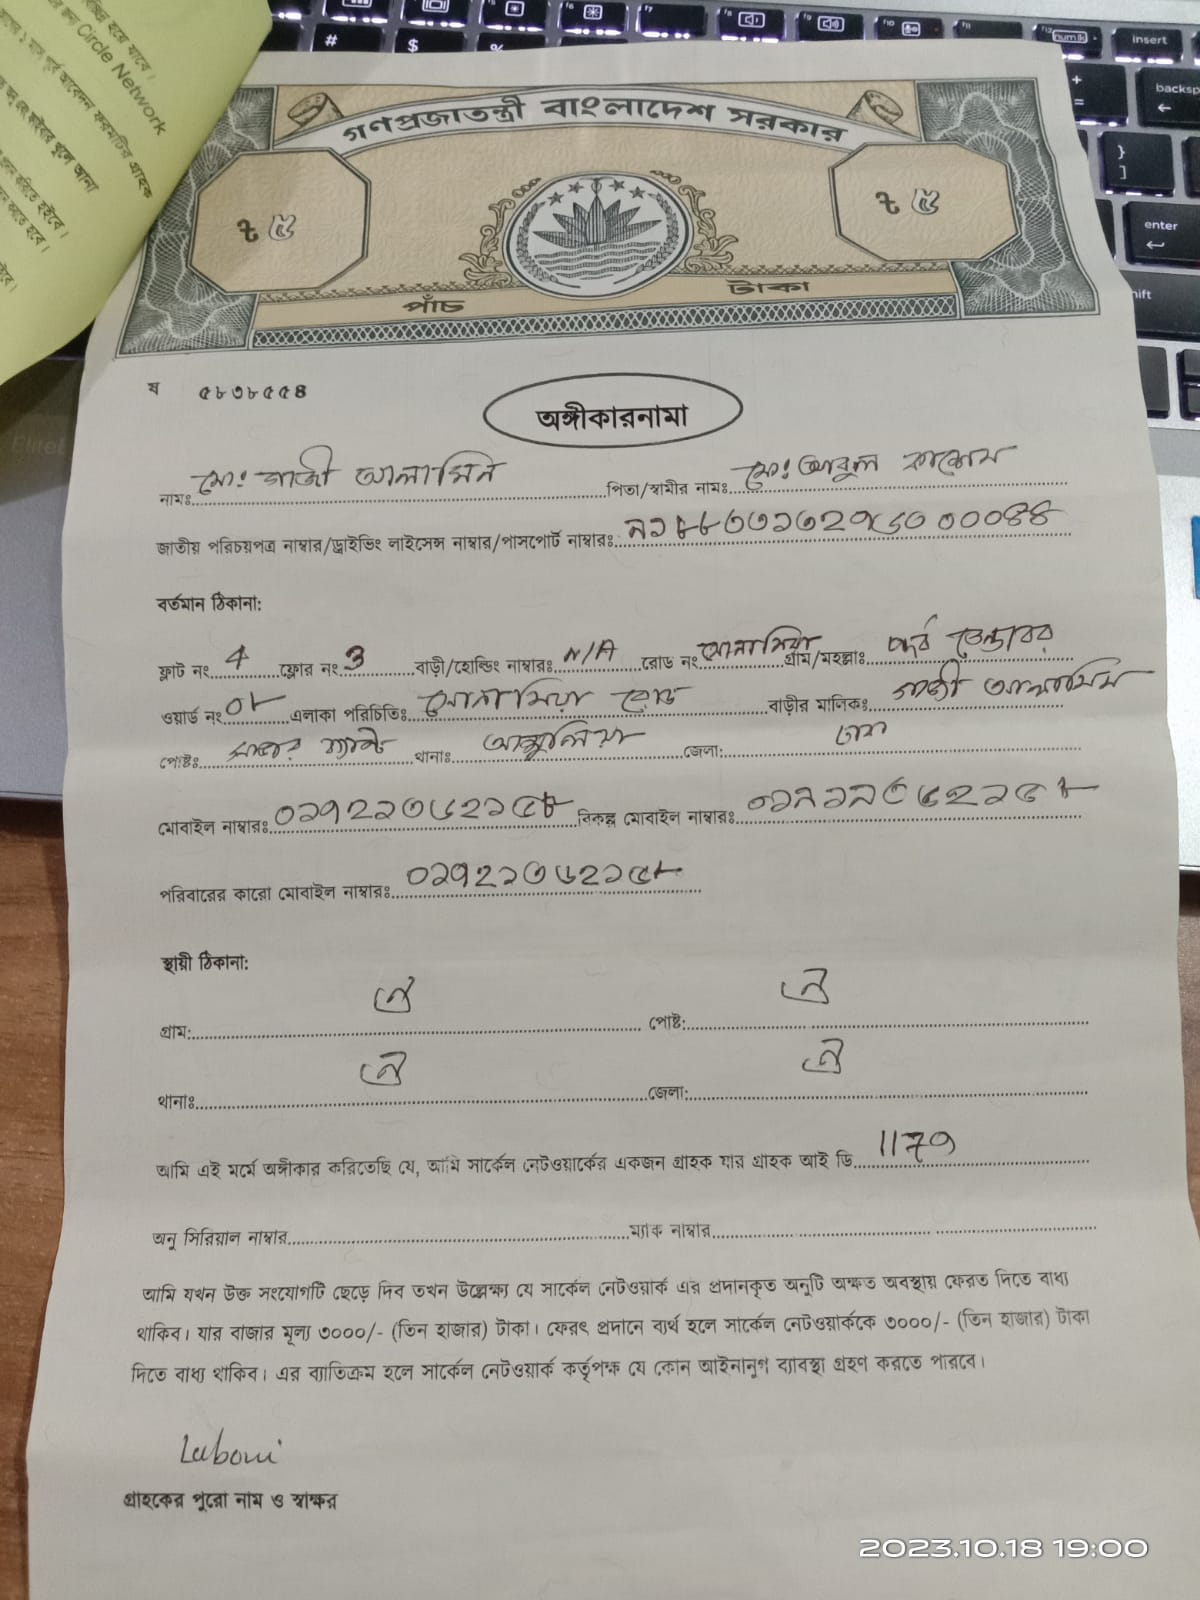 Circle Network
গণপ্রজাতন্ত্রী বাংলাদেশ সরকার
৳ ৫ ৳ ৫
পাঁচ টাকা
ষ ৫৮৩৮৫৫৪
অঙ্গীকারনামা
নামঃ মোঃ গাজী আলামিন পিতা/স্বামীর নামঃ মোঃ আবুল কাশেম
জাতীয় পরিচয়পত্র নাম্বার/ড্রাইভিং লাইসেন্স নাম্বার/পাসপোর্ট নাম্বারঃ
বর্তমান ঠিকানা:
ফ্লাট নং 4 ফ্লোর নং 3 বাড়ী/হোল্ডিং নাম্বারঃ N/A রোড নং সোনামিয়া গ্রাম/মহল্লাঃ পূর্ব
ওয়ার্ড নং ০৮ এলাকা পরিচিতিঃ সোনামিয়া রোড বাড়ীর মালিকঃ গাজী আলামিন
পোষ্টঃ থানাঃ আশুলিয়া জেলা: ঢাকা
মোবাইল নাম্বারঃ ০১৭২১৩৬২১৫৮ বিকল্প মোবাইল নাম্বারঃ
পরিবারের কারো মোবাইল নাম্বারঃ ০১৭২১৩৬২১৫৮
স্থায়ী ঠিকানা:
গ্রাম: ঐ পোষ্ট: ঐ
থানাঃ ঐ জেলা: ঐ
আমি এই মর্মে অঙ্গীকার করিতেছি যে, আমি সার্কেল নেটওয়ার্কের একজন গ্রাহক যার গ্রাহক আই ডি 1179
অনু সিরিয়াল নাম্বার ম্যাক নাম্বার
আমি যখন উক্ত সংযোগটি ছেড়ে দিব তখন উল্লেক্ষ্য যে সার্কেল নেটওয়ার্ক এর প্রদানকৃত অনুটি অক্ষত অবস্থায় ফেরত দিতে বাধ্য
থাকিব। যার বাজার মূল্য ৩০০০/- (তিন হাজার) টাকা। ফেরৎ প্রদানে ব্যর্থ হলে সার্কেল নেটওয়ার্ককে ৩০০০/- (তিন হাজার) টাকা
দিতে বাধ্য থাকিব। এর ব্যাতিক্রম হলে সার্কেল নেটওয়ার্ক কর্তৃপক্ষ যে কোন আইনানুগ ব্যাবস্থা গ্রহণ করতে পারবে।
Laboni
গ্রাহকের পুরো নাম ও স্বাক্ষর
2023.10.18 19:00